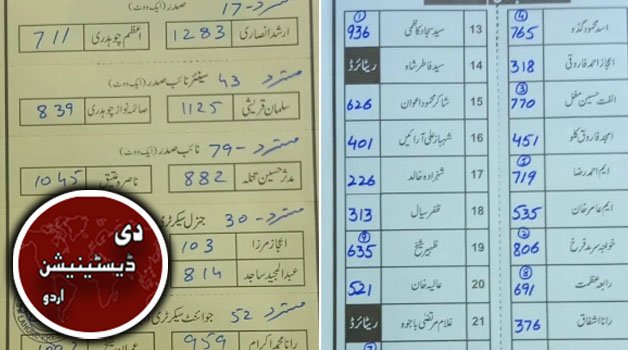 مسترد - 17 صدر (ایک ووٹ)
ارشد انصاری 1283 اعظم چوہدری 711
مسترد - 43 سینئر نائب صدر (ایک ووٹ)
سلمان قریشی 1125 صائمہ نواز چوہدری 839
مسترد - 79 نائب صدر (ایک ووٹ)
مدثر حسین تتلہ 882 ناصرہ عتیق 1045
مسترد - 30 جنرل سیکرٹری
اعجاز مرزا 103
عبدالمجید ساجد 814
مسترد 52 جوائنٹ سیکرٹری
رانا محمد اکرام 959
دی
ڈیسٹینیشن
اردو
اسد محمود گڈہ 765 ④
اعجاز احمد فاروقی 318
الفت حسین مغل 770 ③
امجد فاروق کلو 451
ایم احمد رضا 719
ایم عامر خان 535
خواجہ سرمد فرخ 806
رابعہ عظمت 691 ⑧
رانا اشفاق 376
13 سید سجاد کاظمی 936 ①
14 سید فاطر شاہ ریٹائرڈ
15 شاکر محمود اعوان 626
16 شہباز علی آرائیں 401
17 شہزادہ خالد 226
18 ظفر سیال 313
19 ظہیر شیخ 635 ⑨
20 عالیہ خان 521
21 غلام مرتضیٰ باجوہ ریٹائرڈ